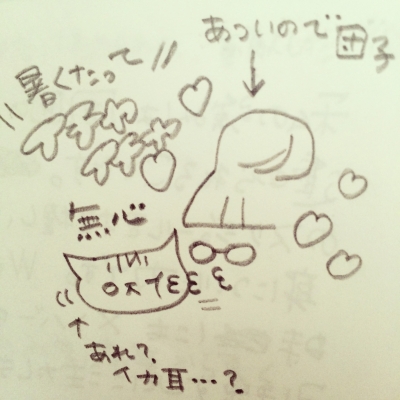 あついので団子
暑くたって
イチャ
イチャ
無心
あれ?
イカ耳…?